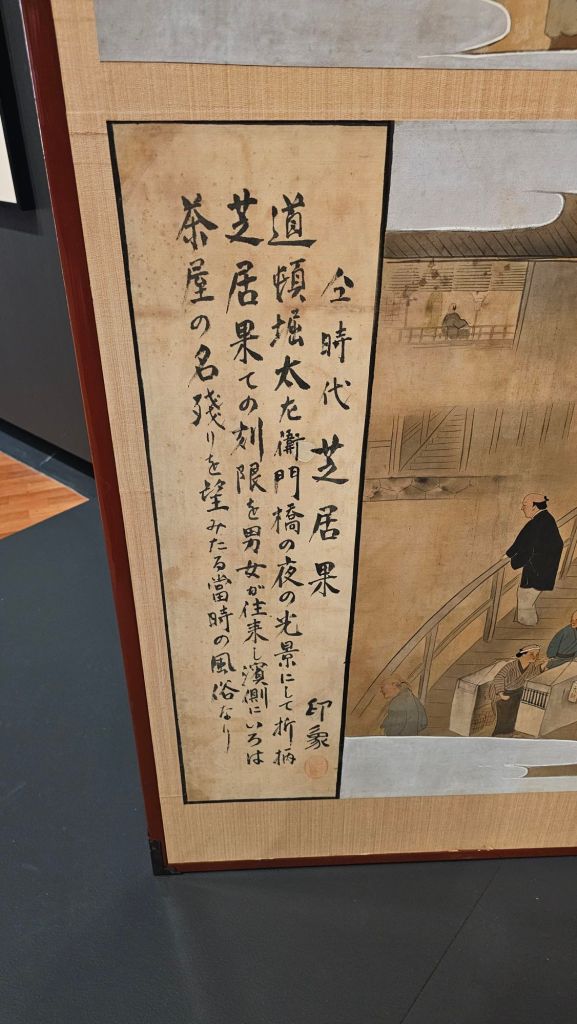 仝時代 芝居果 印象
道頓堀太左衛門橋の夜の光景にして折柄
芝居果ての刻限を男女が往来し濱側にいろは
茶屋の名残りを望みたる當時の風俗なり